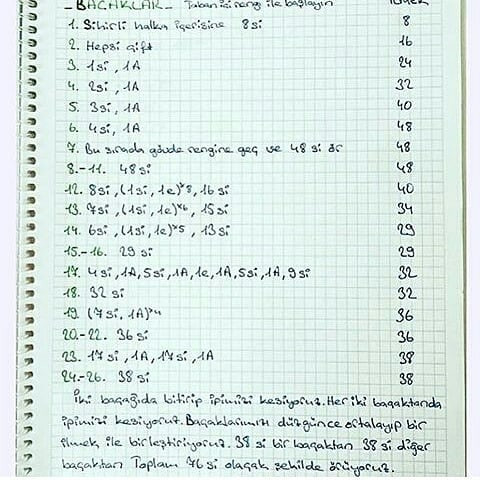 - BACAKLAR - Taban izi rengi ile başlayın
1. Sihirli halka içerisine 8 si 8
2. Hepsi çift 16
3. 1 si , 1A 24
4. 2 si , 1A 32
5. 3 si , 1A 40
6. 4 si , 1A 48
7. Bu sırada gövde rengine geç ve 48 si ör 48
8.-11. 48 si 48
12. 8si , (1si , 1e)*8 , 16 si 40
13. 7si , (1si , 1e)*6 , 15 si 34
14. 6si , (1si , 1e)*5 , 13 si 29
15.-16. 29 si 29
17. 4 si , 1A , 5 si , 1A , 1e , 1A , 5 si , 1A , 9 si 32
18. 32 si 32
19. (7 si , 1A)*4 36
20-22. 36 si 36
23. 17 si , 1A , 17 si , 1A 38
24-26. 38 si 38
İki bacağıda bitirip ipimizi kesiyoruz. Her iki bacaktanda
ipimizi kesiyoruz. Bacaklarımızı düzgünce ortalayıp bir
ilmek ile birleştiriyoruz. 38 si bir bacaktan 38 si diğer
bacaktan Toplam 76 si olacak şekilde örüyoruz.